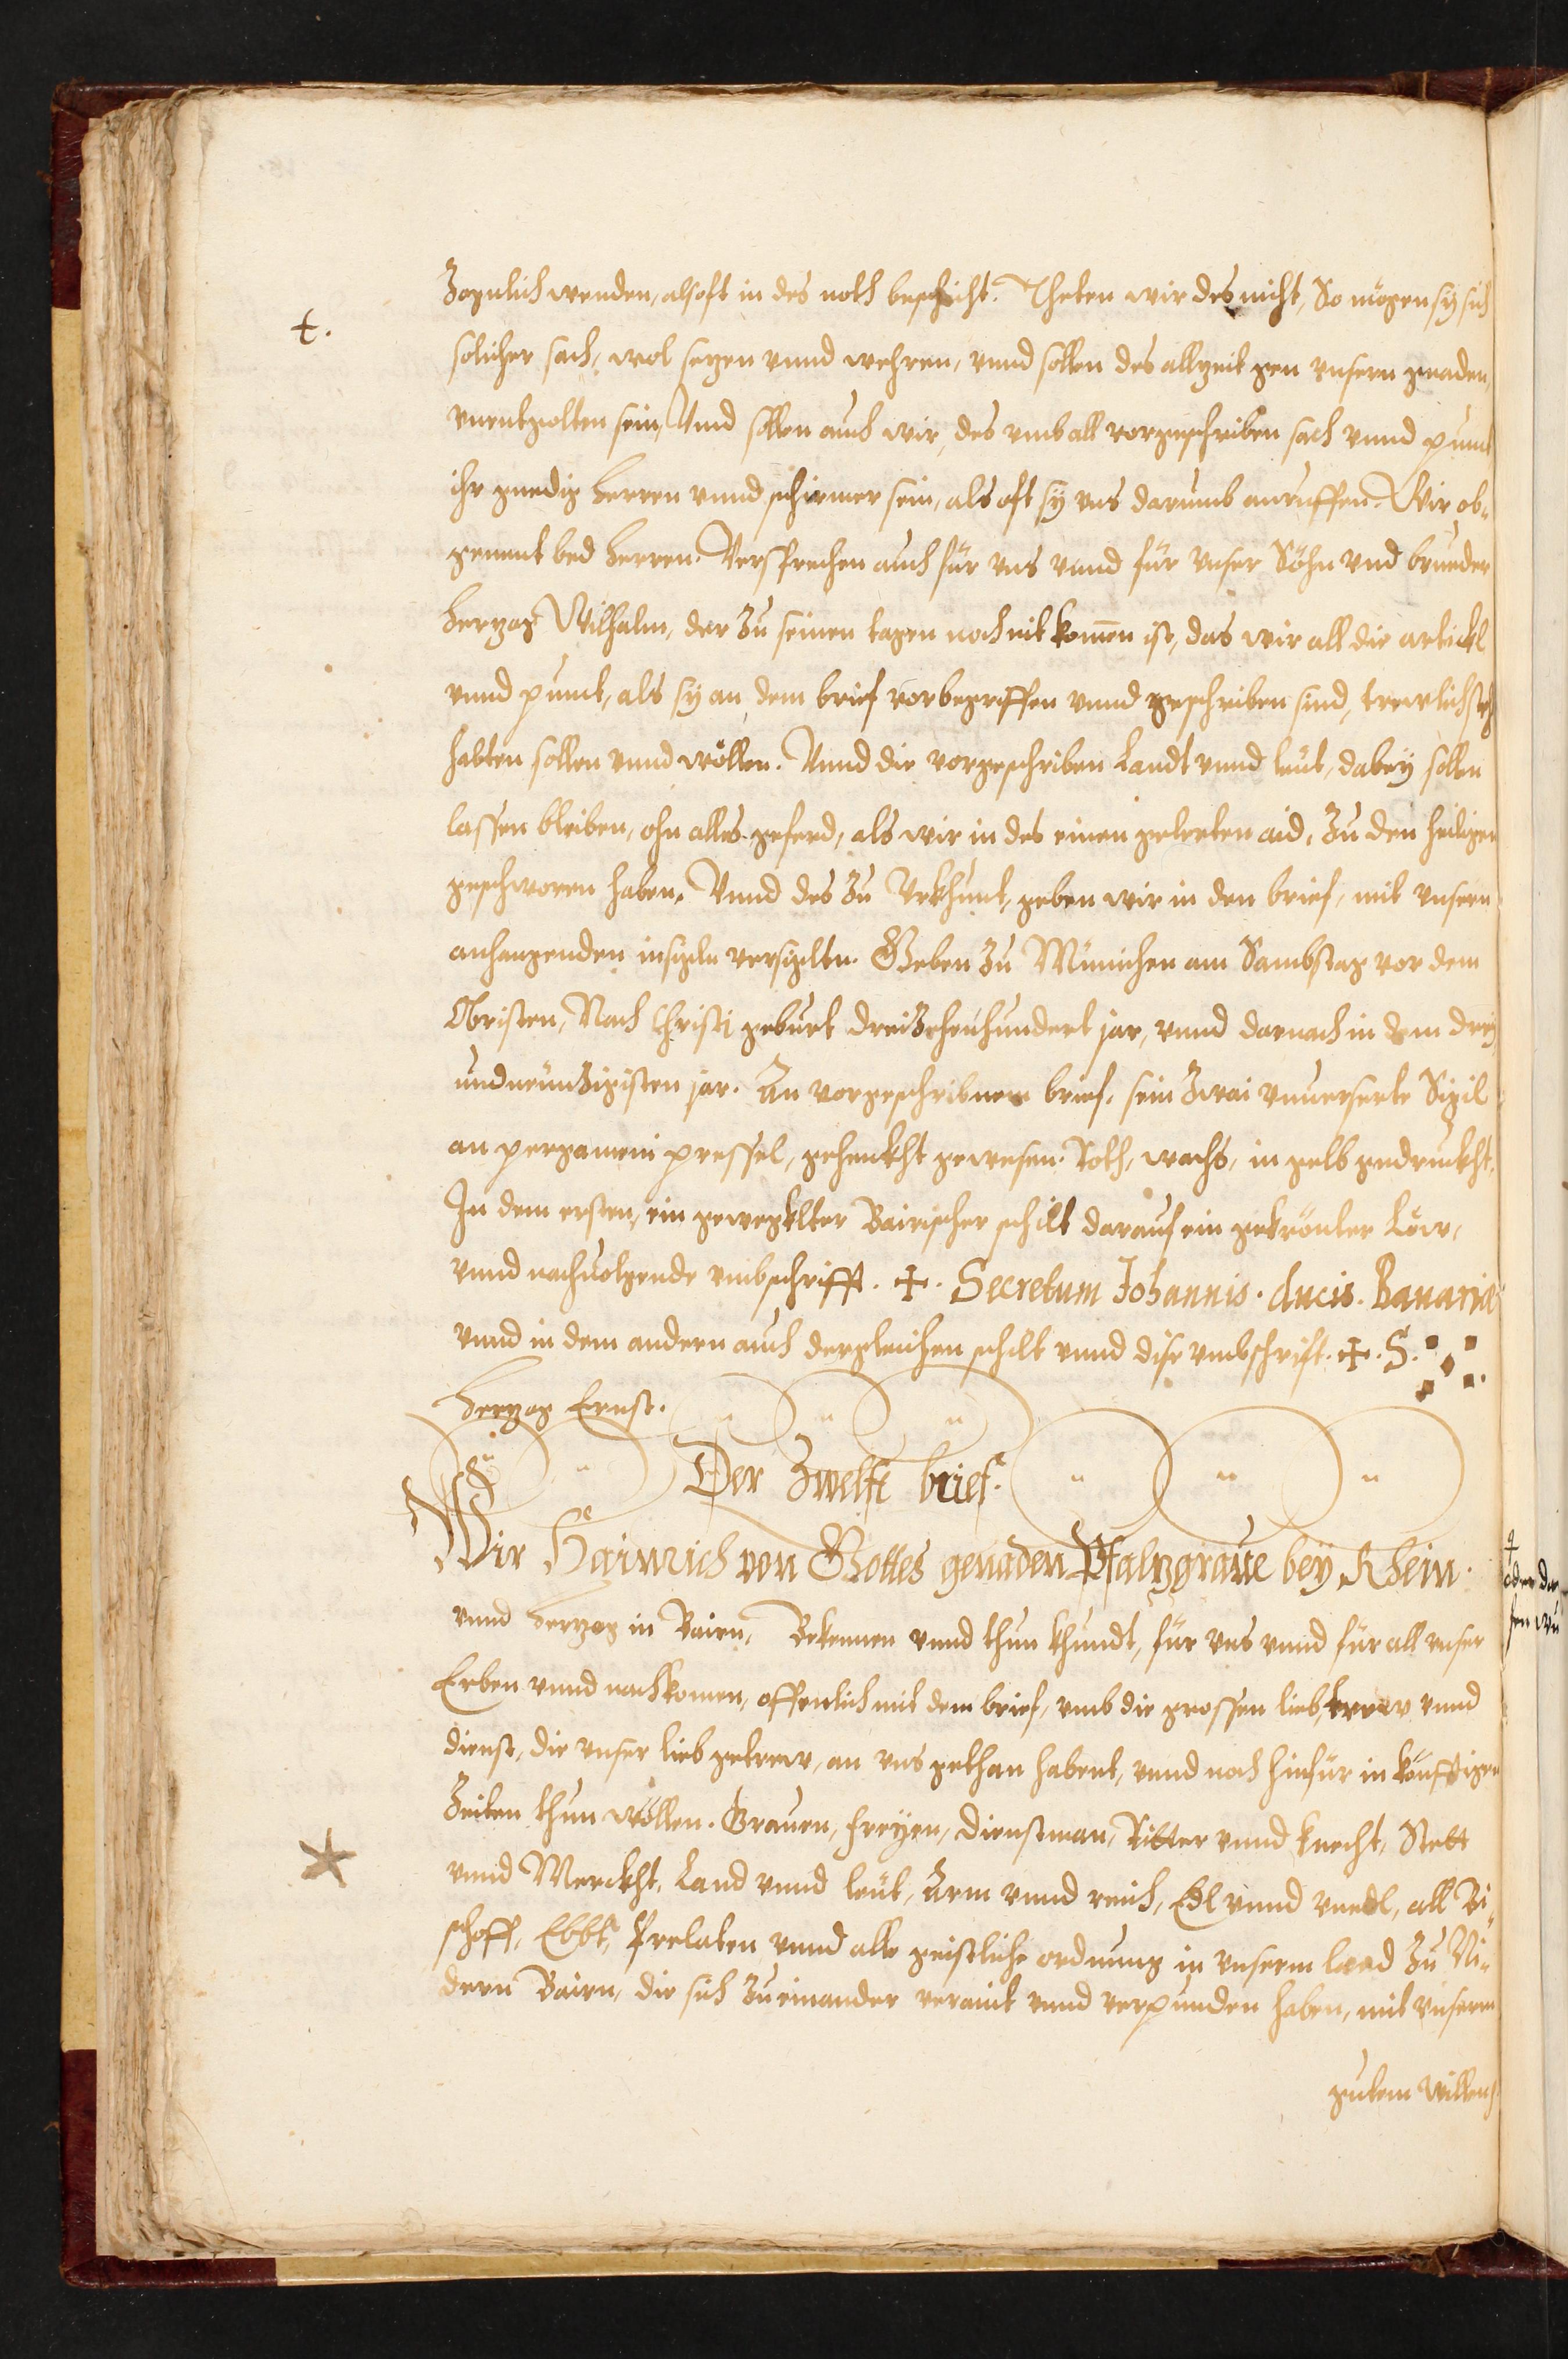 Zognlich wenden, alsoft in des noth beschicht. Theten wir des nicht, So mögen sy sich
t.
solicher sach, wol sezen vnnd wehren, vnnd sollen des allzeit gen vnsern gnaden,
vnentgolten sein, Vnnd sollen auch wir, des vmb all vorgeschriben sach vnnd punct
ihr gnedig Herren vnnd schirmer sein, als oft sy vns darumb anruffen. Wir ob-
gennt bed Herren. Versprechen auch für vns vnnd für vnser Söhn vnd brueder
Herzog Wilhalm, der zu seinen tagen noch nit komen ist, das wir all die artickl
vnnd punct, als sy an dem brief vorbegriffen vnnd geschriben sind, trewlich steh
habten sollen vnnd wöllen. Vnnd die vorgeschriben Landt vnnd leut, dabey sollen
lassen bleiben, ohn alles geferd, als wir in des einen gelerten aid, zu den heiligen
geschworen haben. Vnnd des zu Vrkhunt, geben wir in den brief, mit vnsern
anhangenden insigeln versigelten. Geben zu München am Sambstag vor dem
Obristen, Nach Christi geburt dreizehenhundert jar, vnnd darnach in dem drey
undneunzigisten jar. An vorgeschribnem brief, sein zwai vnuerserte Sigil
an pergameni pressel, gehenkht gewesen. Roth, wachs, in gelb gedruckht.
In dem ersten, ein geweghlter Bairischer schilt darauf ein gekrönter Löw,
vnnd nachuolgende vmbschrifft. ✠. Secretum Johannis. ducis. Bauariae
vnnd in dem andern auch dergleichen schilt vnnd dise vmbschrift. ✠. S.
Herzog Ernst.
Der Zwelft brief.
Wir Hainrich von Gottes genaden Pfalzgraue bey Rhein.
vnnd Herzog in Bairn, Bekennen vnnd thun khundt, für vns vnnd für all vnser
Erben vnnd nachkomen, offenlich mit dem brief, vmb die grossen lieb, trew vnnd
dienst, die vnser lieb getrew, an vns gethan habent, vnnd noch hinfür in künfftigen
Zeiten thun wöllen. Grauen, freyen, dienstman, Ritter vnnd knecht, Stett
vnnd Merckht, Land vnnd leut, Arm vnnd reich, Edl vnnd vnedl, all Bi-
schoff, Ebbt, Prelaten vnnd alle geistliche ordnung in vnserm land zu Ni-
dern Bairn, die sich zueinander veraint vnnd verpunden haben, mit vnserm
gutem willen